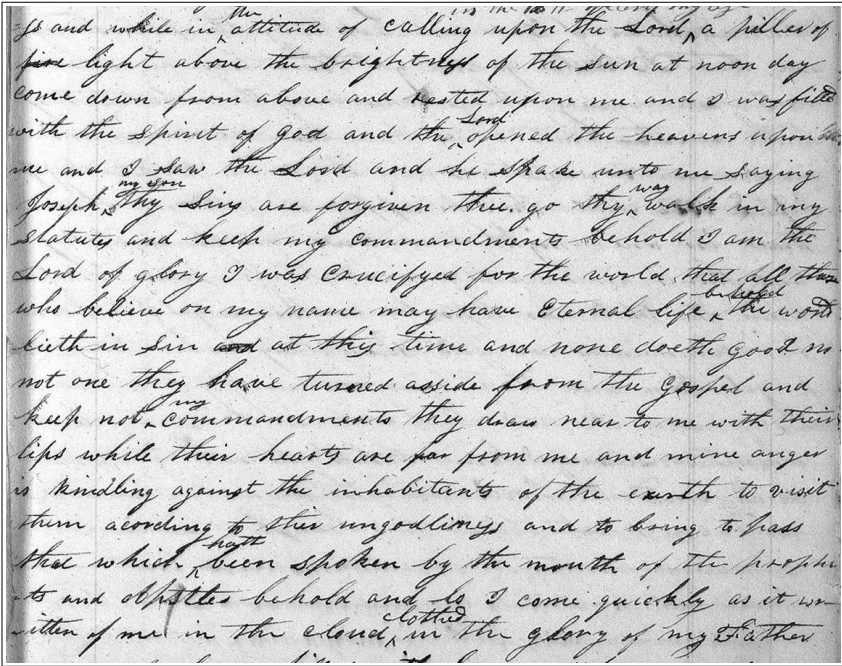 in the 16th year of my age
ss and while in the attitude of calling upon the Lord a piller of
fire light above the brightness of the sun at noon day
come down from above and rested upon me and I was filld
with the spirit of god and the Lord opened the heavens upon
me and I saw the Lord and he spake unto me saying
Joseph my son thy sins are forgiven thee. go thy way walk in my
statutes and keep my commandments behold I am the
Lord of glory I was crucifyed for the world that all those
who believe on my name may have Eternal life behold the world
lieth in sin and at this time and none doeth good no
not one they have turned asside from the gospel and
keep not my commandments they draw near to me with their
lips while their hearts are far from me and mine anger
is kindling against the inhabitants of the earth to visit
them acording to thir ungodliness and to bring to pass
that which hath been spoken by the mouth of the prophe
ts and Apstles behold and lo I come quickly as it wr
itten of me in the cloud clothed in the glory of my Father